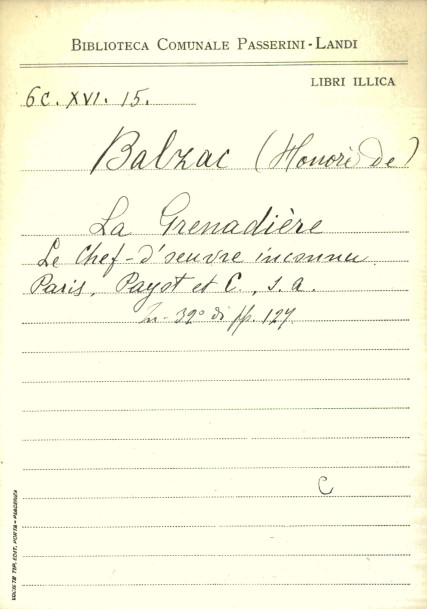 BIBLIOTECA COMUNALE PASSERINI-LANDI
LIBRI ILLICA
6C. XVI. 15.
Balzac (Honoré de)
La Grenadière
Le Chef-d'oeuvre inconnu
Paris, Payot et C., s. a.
In-32° di pp. 127
C